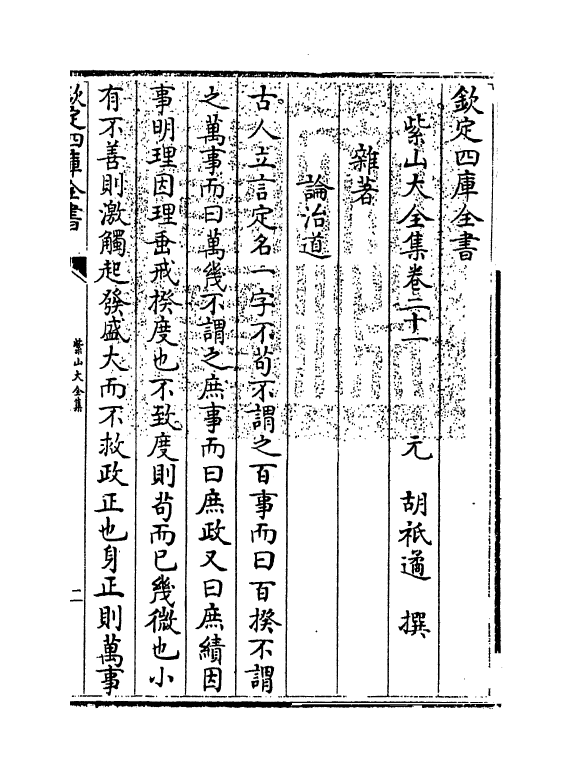 欽定四庫全書
紫山大全集卷二十一　元　胡祗遹　撰
雜著
論治道
古人立言定名一字不苟不謂之百事而曰百揆不謂
之萬事而曰萬幾不謂之庶事而曰庶政又曰庶績因
事明理因理垂戒揆度也不致度則苟而已幾微也小
有不善則激觸起發盛大而不救政正也身正則萬事
欽定四庫全書
紫山大全集
二